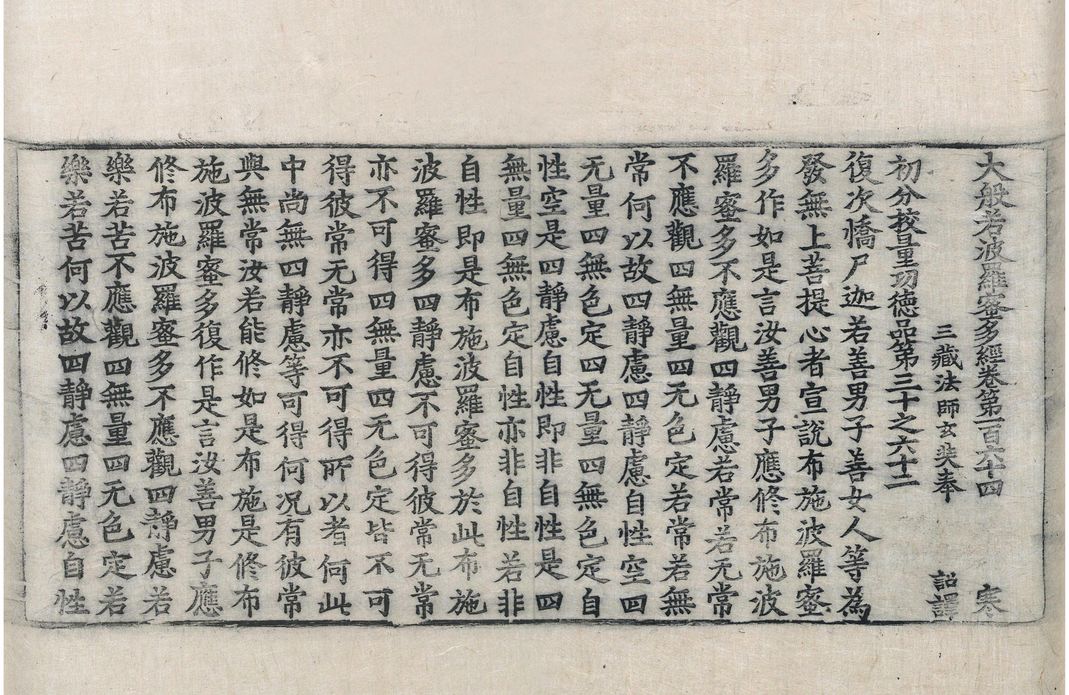 大般若波羅蜜多經卷第一百六十四　寒
三藏法師玄奘奉　詔譯
初分校量功德品第三十之六十二
復次憍尸迦若善男子善女人等為
發無上菩提心者宣說布施波羅蜜
多作如是言汝善男子應修布施波
羅蜜多不應觀四靜慮若常若无常
不應觀四無量四无色定若常若無
常何以故四靜慮四靜慮自性空四
无量四無色定四无量四無色定自
性空是四靜慮自性即非自性是四
無量四無色定自性亦非自性若非
自性即是布施波羅蜜多於此布施
波羅蜜多四靜慮不可得彼常无常
亦不可得四無量四无色定皆不可
得彼常无常亦不可得所以者何此
中尚無四靜慮等可得何况有彼常
與無常汝若能修如是布施是修布
施波羅蜜多復作是言汝善男子應
修布施波羅蜜多不應觀四靜慮若
樂若苦不應觀四無量四无色定若
樂若苦何以故四靜慮四靜慮自性